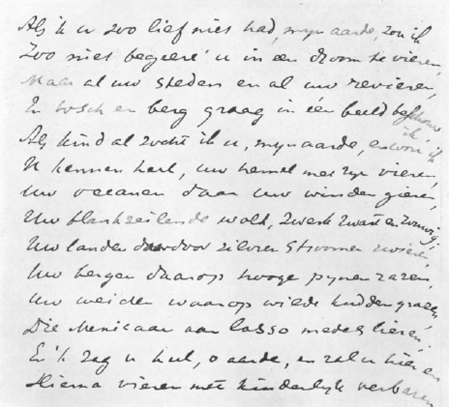 Als 'k u zoo lief niet had, mijn aarde, zou ik
Zoo niet begeere' u in een droom te vieren,
Maar al uw steden en al uw rivieren,
En bosch en berg graag in één beeld
Als kind al zocht ik u, mijn aarde, en
U kennen heel, uw hemel met zijn vieren,
Uw oceanen daar uw winden gieren,
Uw blankzeilende wolk, zwerk zwart en
Uw landen daardoor zilvren stroomen
Uw bergen daarop hooge pijnen razen,
Uw weiden waarop wilde kudden grazen
Die Mexicaan aan lasso mede
En 'k zag u heel, o aarde, en zal u hier en
Hierna vieren met kinderlijk verbazen